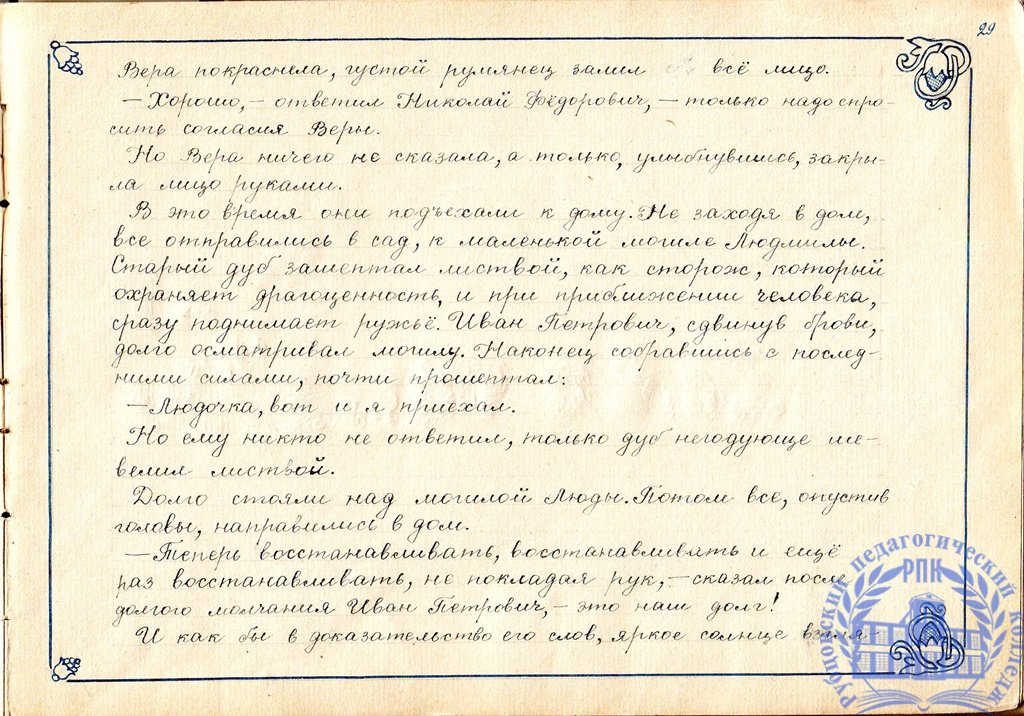 29
Вера покраснела, густой румянец залил всё лицо.
— Хорошо, — ответил Николай Фёдорович, — только надо спро-
сить согласия Веры.
Но Вера ничего не сказала, а только, улыбнувшись, закры-
ла лицо руками.
В это время они подъехали к дому. Не заходя в дом,
все отправились в сад, к маленькой могиле Людмилы.
Старый дуб зашептал листвой, как сторож, который
охраняет драгоценность, и при приближении человека,
сразу поднимает ружьё. Иван Петрович, сдвинув брови,
долго осматривал могилу. Наконец собравшись с послед-
ними силами, почти прошептал:
— Людочка, вот и я приехал.
Но ему никто не ответил, только дуб негодующе ше-
велил листвой.
Долго стояли над могилой Люды. Потом все, опустив
головы, направились в дом.
— Теперь восстанавливать, восстанавливать и ещё
раз восстанавливать, не покладая рук, — сказал после
долгого молчания Иван Петрович, — это наш долг!
И как бы в доказательство его слов, яркое солнце взгля-
Рубцовский педагогический колледж
РПК